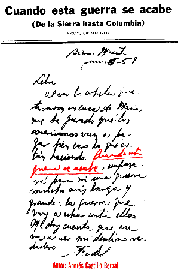 Cuando esta guerra se acabe
(De la Sierra hasta Columbia)
Sierra Maestra
Junio 5-58
Celia,
al ver los cohetes que
tiraron en casa de Mario,
me he jurado que los
americanos van a pa-
gar bien caro lo que es-
tán haciendo. Cuando esta
guerra se acabe, empeza-
rá para mí una guerra
mucho más larga y
grande: la guerra que
voy a echar contra ellos.
Me doy cuenta que ese
va a ser mi destino ver-
dadero.
Fidel